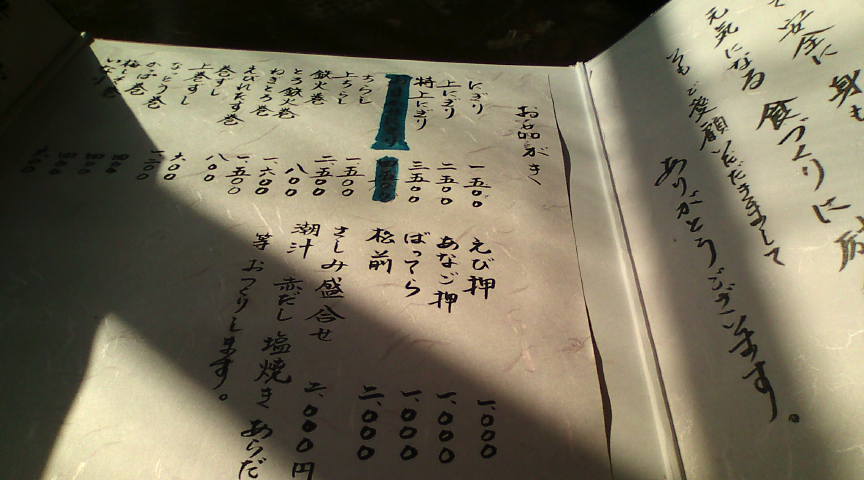 安全に身も
元気になる食づくりに
もご愛顧いただきまして
ありがとうございます。
お品がき
にぎり 一、五〇〇
上にぎり 二、五〇〇
特上にぎり 三、五〇〇
四、五〇〇
ちらし 一、五〇〇
上ちらし 二、五〇〇
鉄火巻 八〇〇
とろ鉄火巻 一、六〇〇
ねぎとろ巻 一、五〇〇
えびれたす巻 八〇〇
巻ずし 六〇〇
上巻ずし 一、二〇〇
なっとう巻 四〇〇
かっぱ巻 四〇〇
梅しそ巻 四〇〇
えび押 一、〇〇〇
あなご押 一、〇〇〇
ばってら 一、〇〇〇
松前 二、〇〇〇
さしみ盛合せ 二、〇〇〇円
潮汁 赤だし 塩焼き あらだ
等おつくりします。